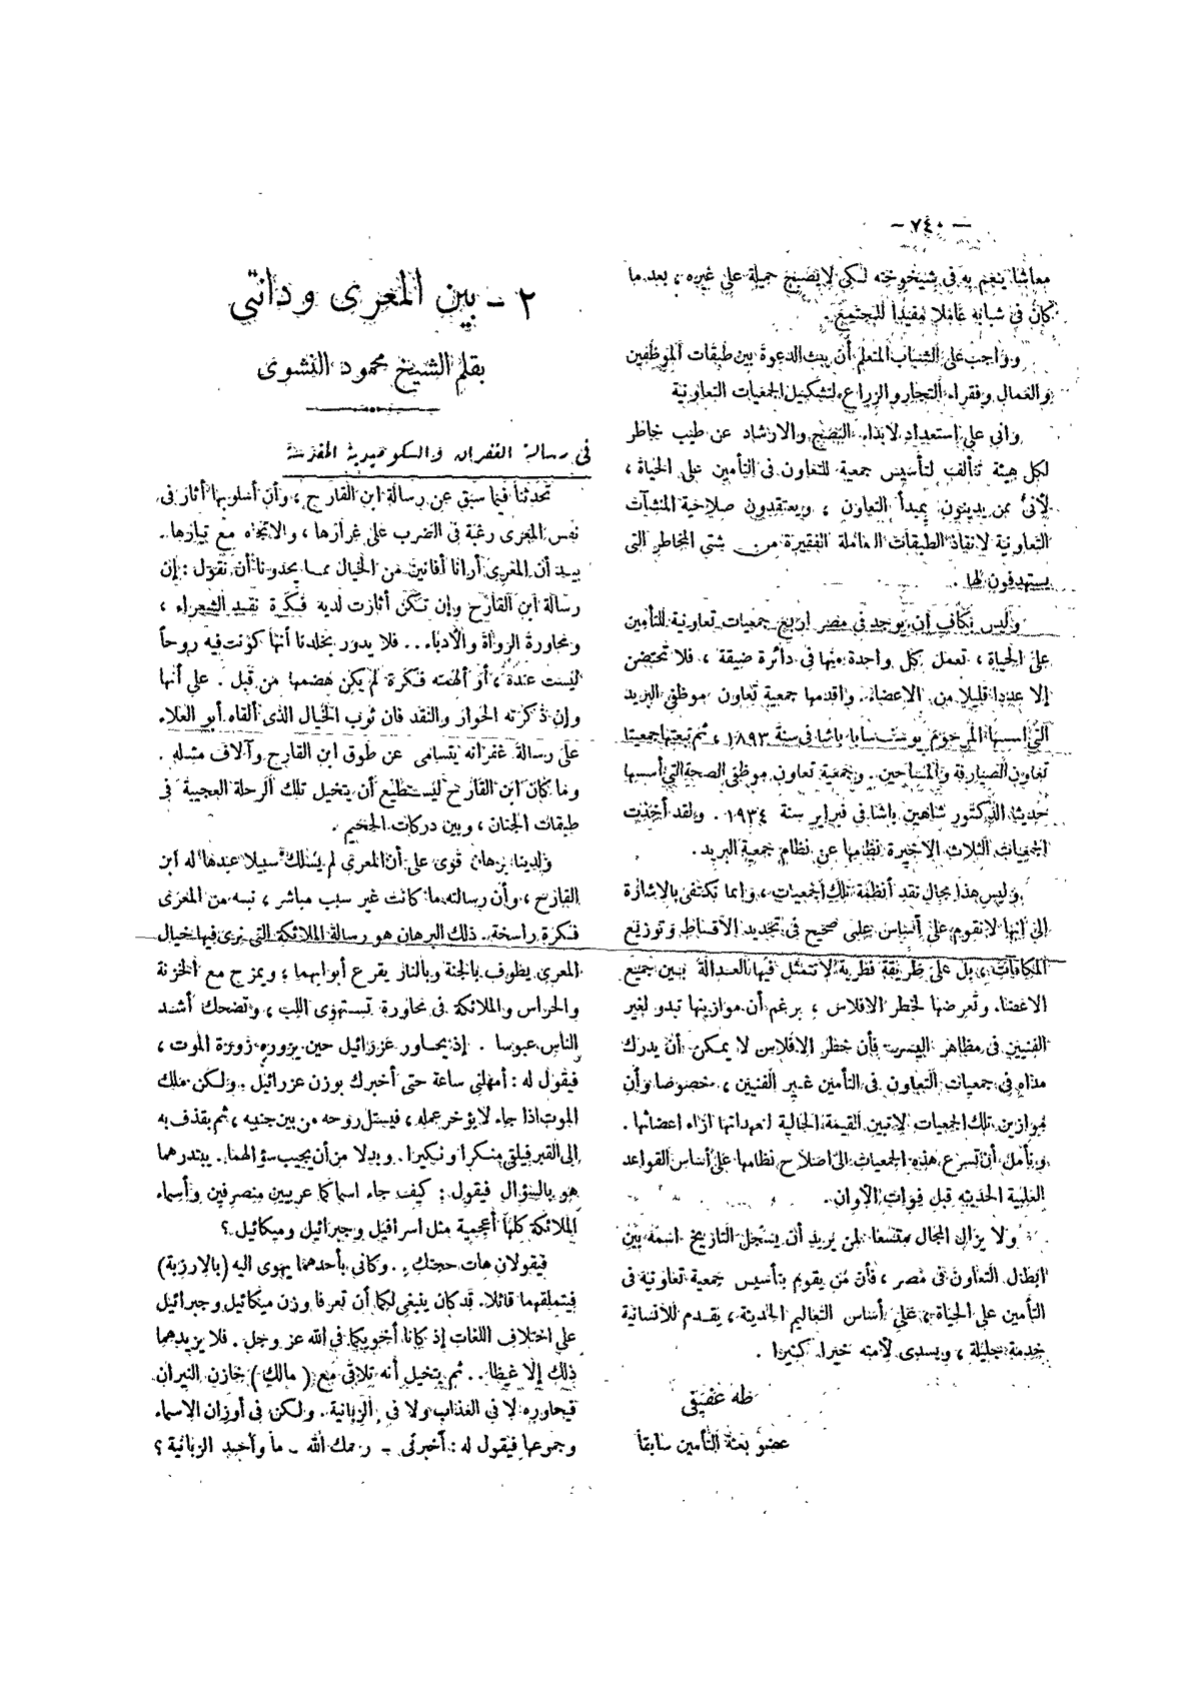 — ٧٤٠ —
معاشا ينعم به فى شيخوخته لكى لا يصبح حميلة على غيره ، بعد ما
كان فى شبابه عاملا مفيدا للمجتمع .
وواجب على الشباب المتعلم أن يبث الدعوة بين طبقات الموظفين
والعمال وفقراء التجار والزراع لتشكيل الجمعيات التعاونية
وانى على استعداد لابداء النصح والارشاد عن طيب خاطر
لكل هيئة تتألف لتأسيس جمعية للتعاون فى التأمين على الحياة ،
لأنى ممن يدينون بمبدأ التعاون ، ويعتقدون صلاحية المنشآت
التعاونية لانقاذ الطبقات العاملة الفقيرة من شتى المخاطر التى
يستهدفون لها .
وليس بكاف ان يوجد فى مصر اربع جمعيات تعاونية للتأمين
على الحياة ، تعمل كل واحدة منها فى دائرة ضيقة ، فلا تحتضن
إلا عددا قليلا من الاعضاء . واقدمها جمعية تعاون موظفى البريد
التى أسسها المرحوم يوسف سابا باشا فى سنة ١٨٩٣ ، ثم تبعتها جمعيتا
تعاون الصيارفة والمساحين . وجمعية تعاون موظفى الصحة التى أسسها
حديثا الدكتور شاهين باشا فى فبراير سنة ١٩٣٤ . ولقد أخذت
الجمعيات الثلاث الاخيرة نظامها عن نظام جمعية البريد .
وليس هذا مجال نقد أنظمة تلك الجمعيات ، وإنما نكتفى بالاشارة
الى أنها لا تقوم على أساس علمى صحيح فى تحديد الأقساط وتوزيع
المكافآت ، بل على طريقة فطرية لا تتمثل فيها العدالة بين جميع
الاعضاء . وتعرضها لخطر الافلاس ، برغم أن موازينها تبدو لغير
الفنيين فى مظاهر اليسر فأن خطر الافلاس لا يمكن أن يدرك
مداه فى جمعيات التعاون فى التأمين غير الفنيين ، خصوصا وأن
موازين تلك الجمعيات لا تبين القيمة الحالية لتعهداتها ازاء اعضائها .
ونأمل أن تسرع هذه الجمعيات الى اصلاح نظامها على أساس القواعد
العلمية الحديثه قبل فوات الأوان .
ولا يزال المجال متسعا لمن يريد أن يسجل التاريخ اسمه بين
ابطال التعاون فى مصر ، فأن من يقوم بتأسيس جمعية تعاونية فى
التأمين على الحياة ، على أساس التعاليم الحديثة ، يقدم للانسانية
خدمة جليلة ، ويسدى لأمته خيرا كثيرا .
طه عفيفى
عضو بعثة التأمين سابقا
٢ - بين المعرى ودانتى
بقلم الشيخ محمود النشوى
فى رسالة الغفران والكوميدية المقدسة
تحدثنا فيما سبق عن رسالة ابن القارح ، وأن أسلوبها أثار فى
نفس المعرى رغبة فى الضرب على غرارها ، والاتجاه مع تيارها .
بيد أن المعرى أرانا أفانين من الخيال مما يحدونا أن نقول : إن
رسالة ابن القارح وإن تكن أثارت لديه فكرة نقد الشعراء ،
ومحاورة الرواة والأدباء .. فلا يدور بخلدنا أنها كونت فيه روحاً
ليست عنده ، أو ألهمته فكرة لم يكن هضمها من قبل . على أنها
وإن ذكرته الحوار والنقد فان ثوب الخيال الذى ألقاه أبو العلاء
على رسالة غفرانه يتسامى عن طوق ابن القارح وآلاف مثله .
وما كان ابن القارح ليستطيع أن يتخيل تلك الرحلة العجيبة فى
طبقات الجنان ، وبين دركات الجحيم .
ولدينا برهان قوى على أن المعرى لم يسلك سبيلا عبدها له ابن
القارح ، وأن رسالته ما كانت غير سبب مباشر ، نبه من المعرى
فكرة راسخة . ذلك البرهان هو رسالة الملائكة التى نرى فيها خيال
المعرى يطوف بالجنة وبالنار يقرع أبوابهما ، ويمزح مع الخزنة
والحراس والملائكة فى محاورة تستهوى اللب ، وتضحك أشد
الناس عبوسا . إذ يحاور عزرائيل حين يزوره زورة الموت ،
فيقول له : أمهلنى ساعة حتى أخبرك بوزن عزرائيل . ولكن ملك
الموت اذا جاء لا يؤخر عمله ، فيستل روحه من بين جنبيه ، ثم يقذف به
الى القبر فيلقى منكرا ونكيرا . وبدلا من أن يجيب سؤالهما . يبتدرهما
هو بالسؤال فيقول : كيف جاء اسماكما عربيين منصرفين وأسماء
الملائكة كلها أعجمية مثل اسرافيل وجبرائيل وميكائيل ؟
فيقولان هات حجتك .. وكأنى بأحدهما يهوى اليه (بالارزبة)
فيتملقهما قائلا . قد كان ينبغى لكما أن تعرفا وزن ميكائيل وجبرائيل
على اختلاف اللغات إذ كانا أخويكما فى الله عز وجل . فلا يزيدهما
ذلك إلا غيظا .. ثم يتخيل أنه تلاقى مع ( مالك ) خازن النيران
فيحاوره لا فى العذاب ولا فى الزبانية . ولكن فى أوزان الاسماء
وجموعها فيقول له : أخبرنى - رحمك الله - ما واحد الزبانية ؟